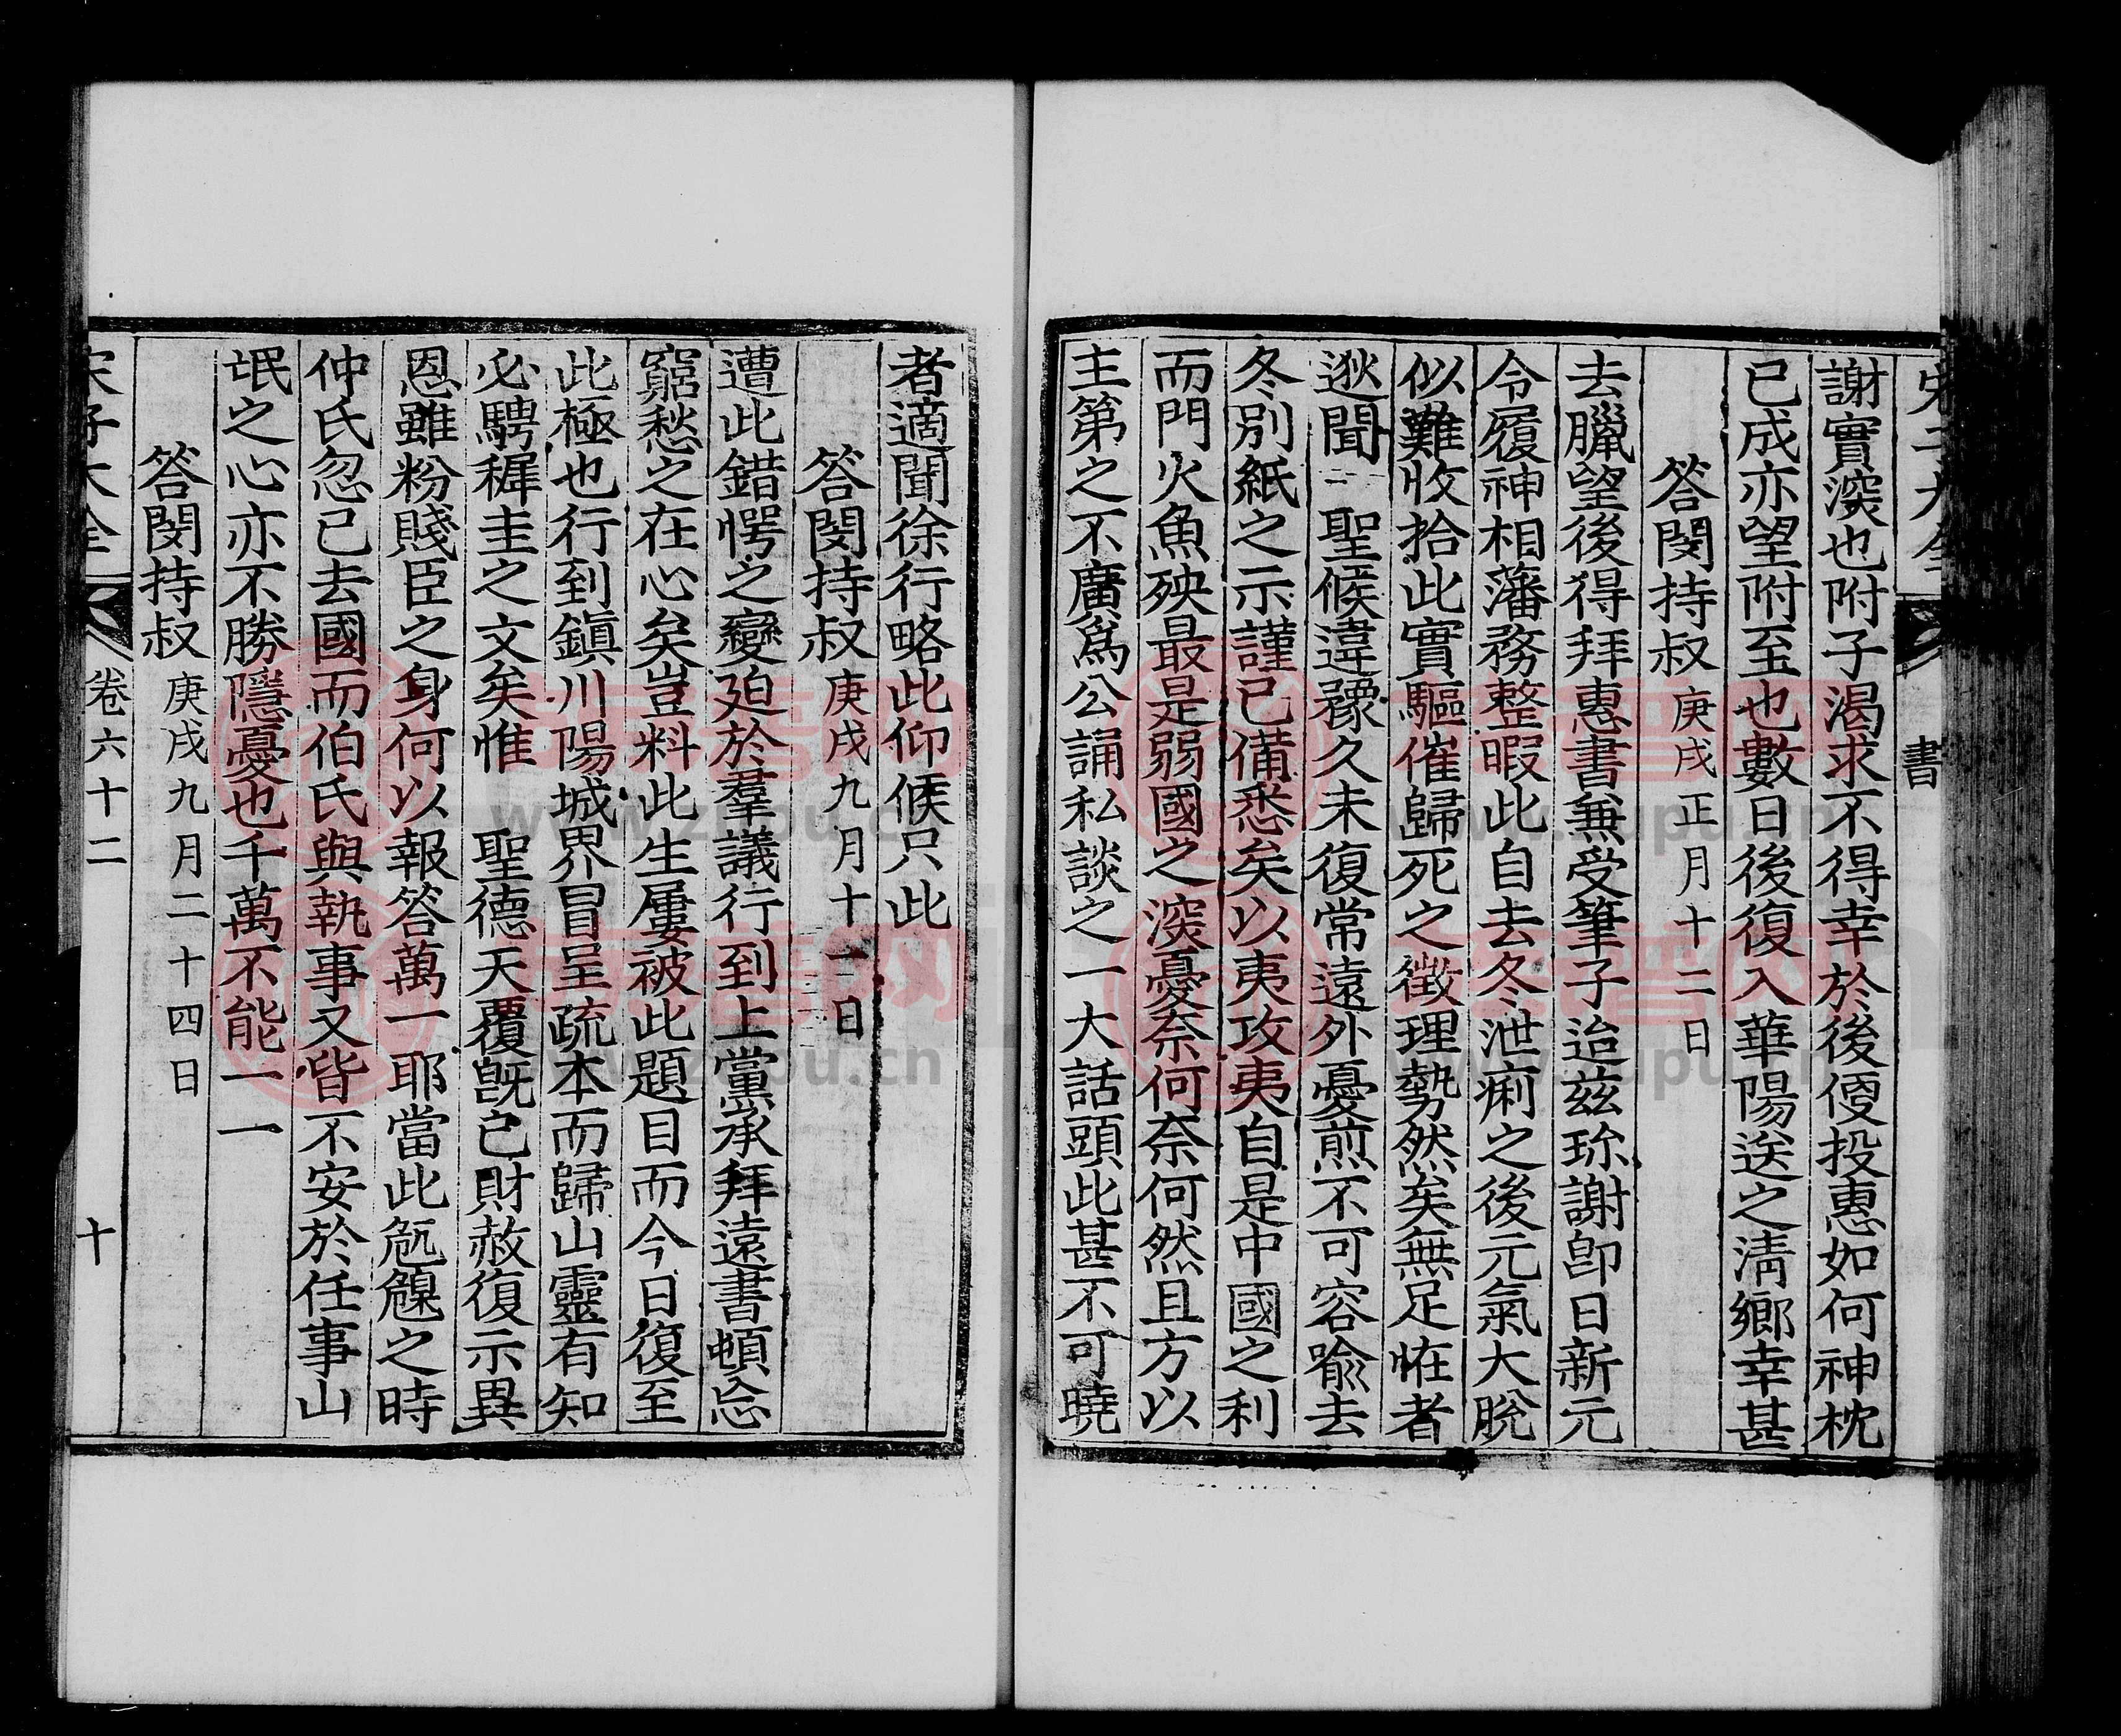 宋子大全 書
謝實深也附子渴求不得幸於後便投惠如何神枕
已成亦望附至也數日後復入華陽送之淸鄉幸甚
答閔持叔庚戌正月十二日
去臘望後得拜惠書兼受筆子迨茲珎謝卽日新元
令履神相藩務整暇此自去冬泄痢之後元氣大脫
似難收拾此實驅催歸死之徵理勢然矣無足恠者
逖聞 聖候違豫久未復常遠外憂煎不可容喩去
冬別紙之示謹已備悉矣以夷攻夷自是中國之利
而門火魚殃最是弱國之深憂奈何奈何然且方以
主第之不廣爲公誦私談之一大話頭此甚不可曉
者適聞徐行略此仰候只此
答閔持叔庚戌九月十一日
遭此錯愕之變廹於羣議行到上黨承拜遠書頓忘
窮愁之在心矣豈料此生屢被此題目而今日復至
此極也行到鎭川陽城界冒呈疏本而歸山靈有知
必騁穉圭之文矣惟 聖德天覆旣已財赦復示異
恩雖粉賤臣之身何以報答萬一耶當此危臲之時
仲氏忽已去國而伯氏與執事又皆不安於任事山
氓之心亦不勝隱憂也千萬不能一一
答閔持叔庚戌九月二十四日
宋子大全 卷六十二 十
族譜网
www.zupu.cn
族譜网
www.zupu.cn
族譜网
www.zupu.cn
族譜网
www.zupu.cn